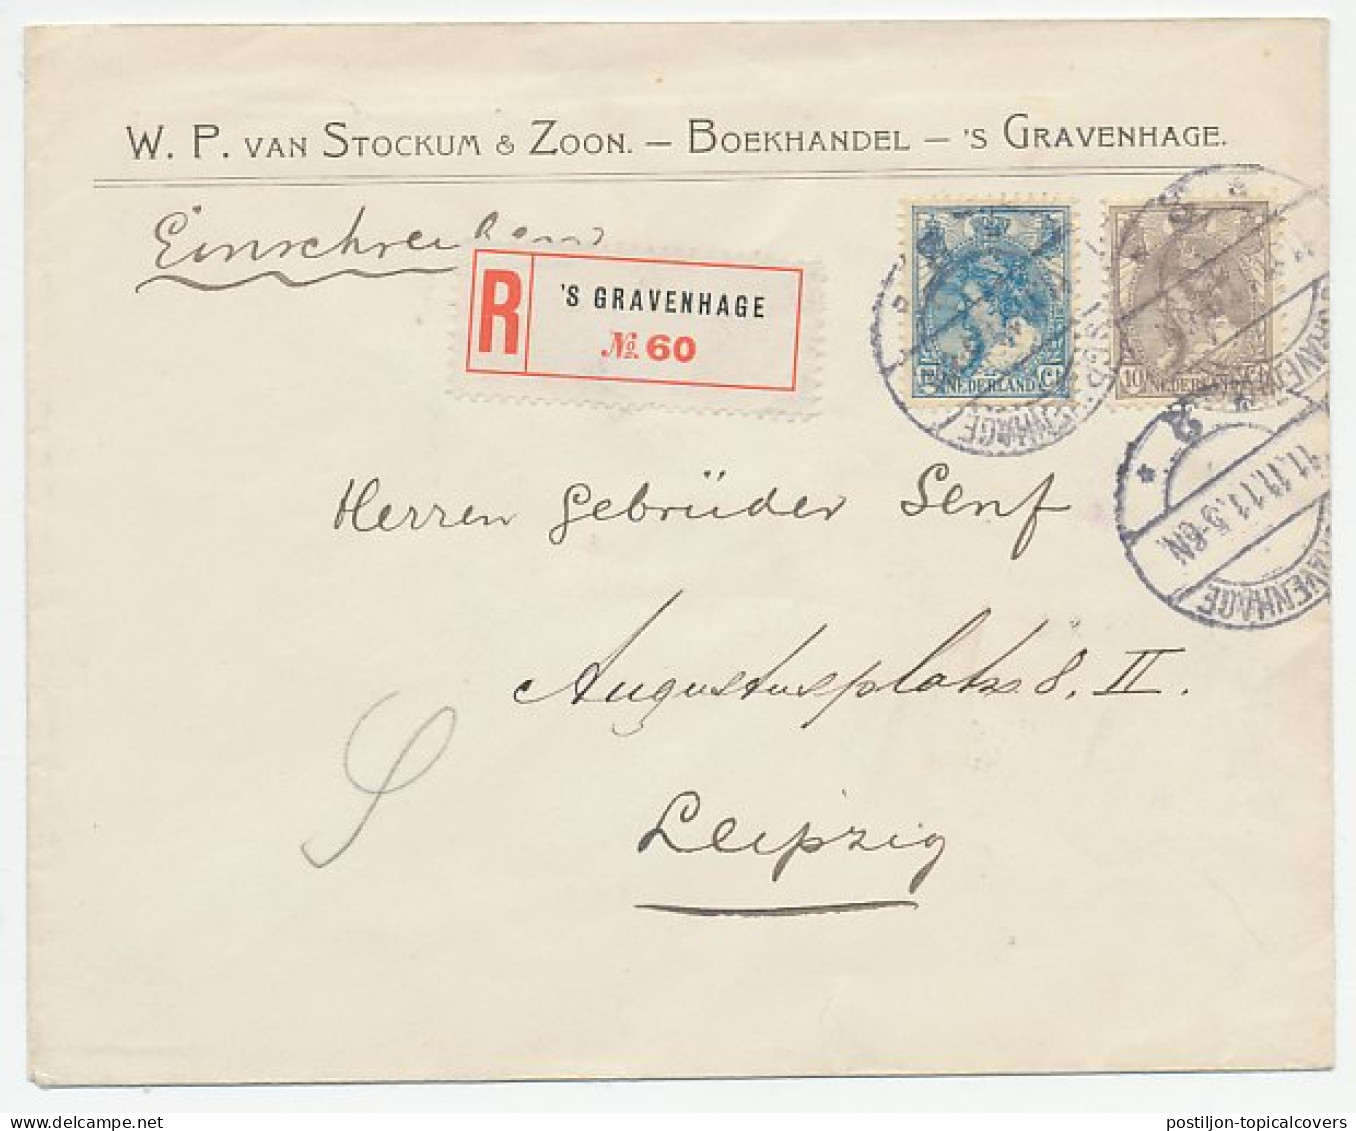 W. P. VAN STOCKUM & ZOON. — BOEKHANDEL — 'S GRAVENHAGE.
Einschreiben
R 'S GRAVENHAGE
No. 60
NEDERLAND Ct
10 NEDERLAND Ct
'S GRAVENHAGE
11.11.11.5-6N.
'S GRAVENHAGE
Herren Gebrüder Senf
Augustusplatz 8. II.
Leipzig
postiljon-topicalcovers